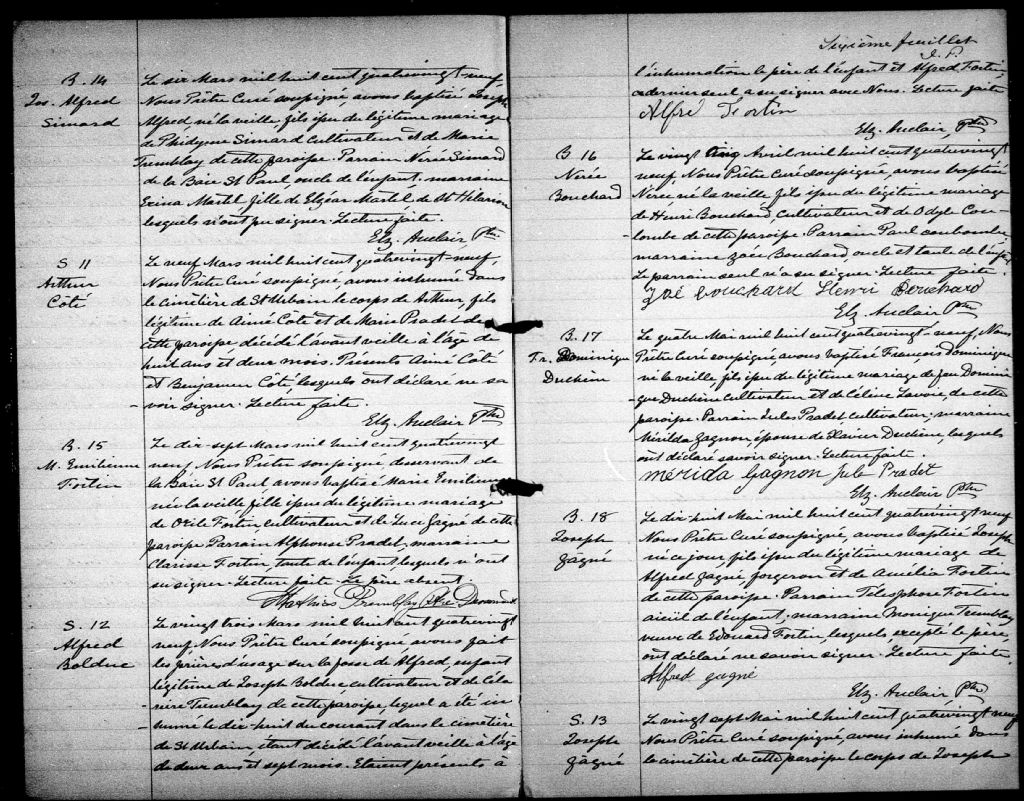 B. 14
Jos. Alfred
Simard
Le six Mars mil huit cent quatrevingt neuf,
Nous Prêtre Curé soussigné, avons baptisé Joseph
Alfred, né la veille, fils issu du légitime mariage
de Phidyme Simard cultivateur et de Marie
Tremblay de cette paroisse. Parrain Nérée Simard
de la Baie St Paul, oncle de l'enfant, marraine
Martel fille de Elzéar Martel de St Hilarion
lesquels n'ont pu signer. Lecture faite.
Elz. Auclair Ptre
S 11
Arthur
Côté
Le neuf Mars mil huit cent quatrevingt neuf,
Nous Prêtre Curé soussigné, avons inhumé dans
le cimétière de St Urbain le corps de Arthur, fils
légitime de Aimé Côté et de Marie Pradet de
cette paroisse décédé l'avant veille à l'âge de
huit ans et deux mois. Présents Aimé Côté
et Benjamin Côté, lesquels ont déclaré ne sa
voir signer. Lecture faite.
Elz. Auclair Ptre
B. 15
M. Emilienne
Fortin
Le dix-sept Mars mil huit cent quatrevingt
neuf, Nous Prêtre soussigné desservant de
la Baie St Paul avons baptisé Marie Emilienne
née la veille, fille issue du légitime mariage
de Fortin cultivateur et de Luce Gagné de cette
paroisse Parrain Alphonse Pradet, marraine
Clarisse Fortin, tante de l'enfant, lesquels n'ont
su signer. Lecture faite. Le père absent
Mathias Tremblay Ptre Desservant
S. 12
Alfred
Bolduc
Le vingt trois Mars mil huit cent quatrevingt
neuf, Nous Prêtre Curé soussigné avons fait
les prières d'usage sur la fosse de Alfred, enfant
légitime de Joseph Bolduc, cultivateur et de Céla
nire Tremblay de cette paroisse, lequel a été in
humé le dix-huit du courant dans le cimétière
de St Urbain, étant décédé l'avant veille à l'âge
de deux ans et sept mois. Etaient présents à
Sixième feuillet
J. P.
l'inhumation le père de l'enfant et Alfred Fortin,
ce dernier seul a su signer avec Nous. Lecture faite
Alfre Fortin
Elz. Auclair Ptre
B 16
Nérée
Bouchard
Le vingt cinq Avril mil huit cent quatrevingt
neuf, Nous Prêtre Curé soussigné, avons baptisé
Nérée, né la veille fils issu du légitime mariage
de Henri Bouchard, cultivateur et de Odyle Cou-
lombe de cette paroisse. Parrain Paul coulombe,
marraine Zoée Bouchard, oncle et tante de l'enfant.
Le parrain seul n'a su signer. Lecture faite.
Zoé bouchard Henri Bouchard
Elz Auclair Ptre
B. 17
Fr. Dominique
Duchêne
Le quatre Mai mil huit cent quatrevingt neuf, Nous
Prêtre Curé soussigné, avons baptisé François Dominique
né la veille, fils issu du légitime mariage de jean Domini
que Duchêne cultivateur et de Céline Lavoie, de cette
paroisse. Parrain Jules Pradet cultivateur, marraine
Mérilda Gagnon, épouse de Xavier Duchêne, lesquels
ont déclaré savoir signer. Lecture faite.
mérida Gagnon Jule Pradet
Elz. Auclair Ptre
B. 18
Joseph
Gagné
Le dix-huit Mai mil huit cent quatrevingt neuf
Nous Prêtre Curé soussigné, avons baptisé Joseph
né ce jour, fils issu du légitime mariage de
Alfred Gagné, forgeron et de Amélia Fortin
de cette paroisse. Parrain Télesphore Fortin
aieül de l'enfant, marraine Monique Tremblay
veuve de Edouard Fortin, lesquels excepté le père,
ont déclaré ne savoir signer. Lecture faite,
Alfred gagné
Elz. Auclair Ptre
S. 13
Joseph
Gagné
Le vingt sept Mai mil huit cent quatrevingt neuf
Nous Prêtre Curé soussigné, avons inhumé dans
le cimétière de cette paroisse le corps de Joseph